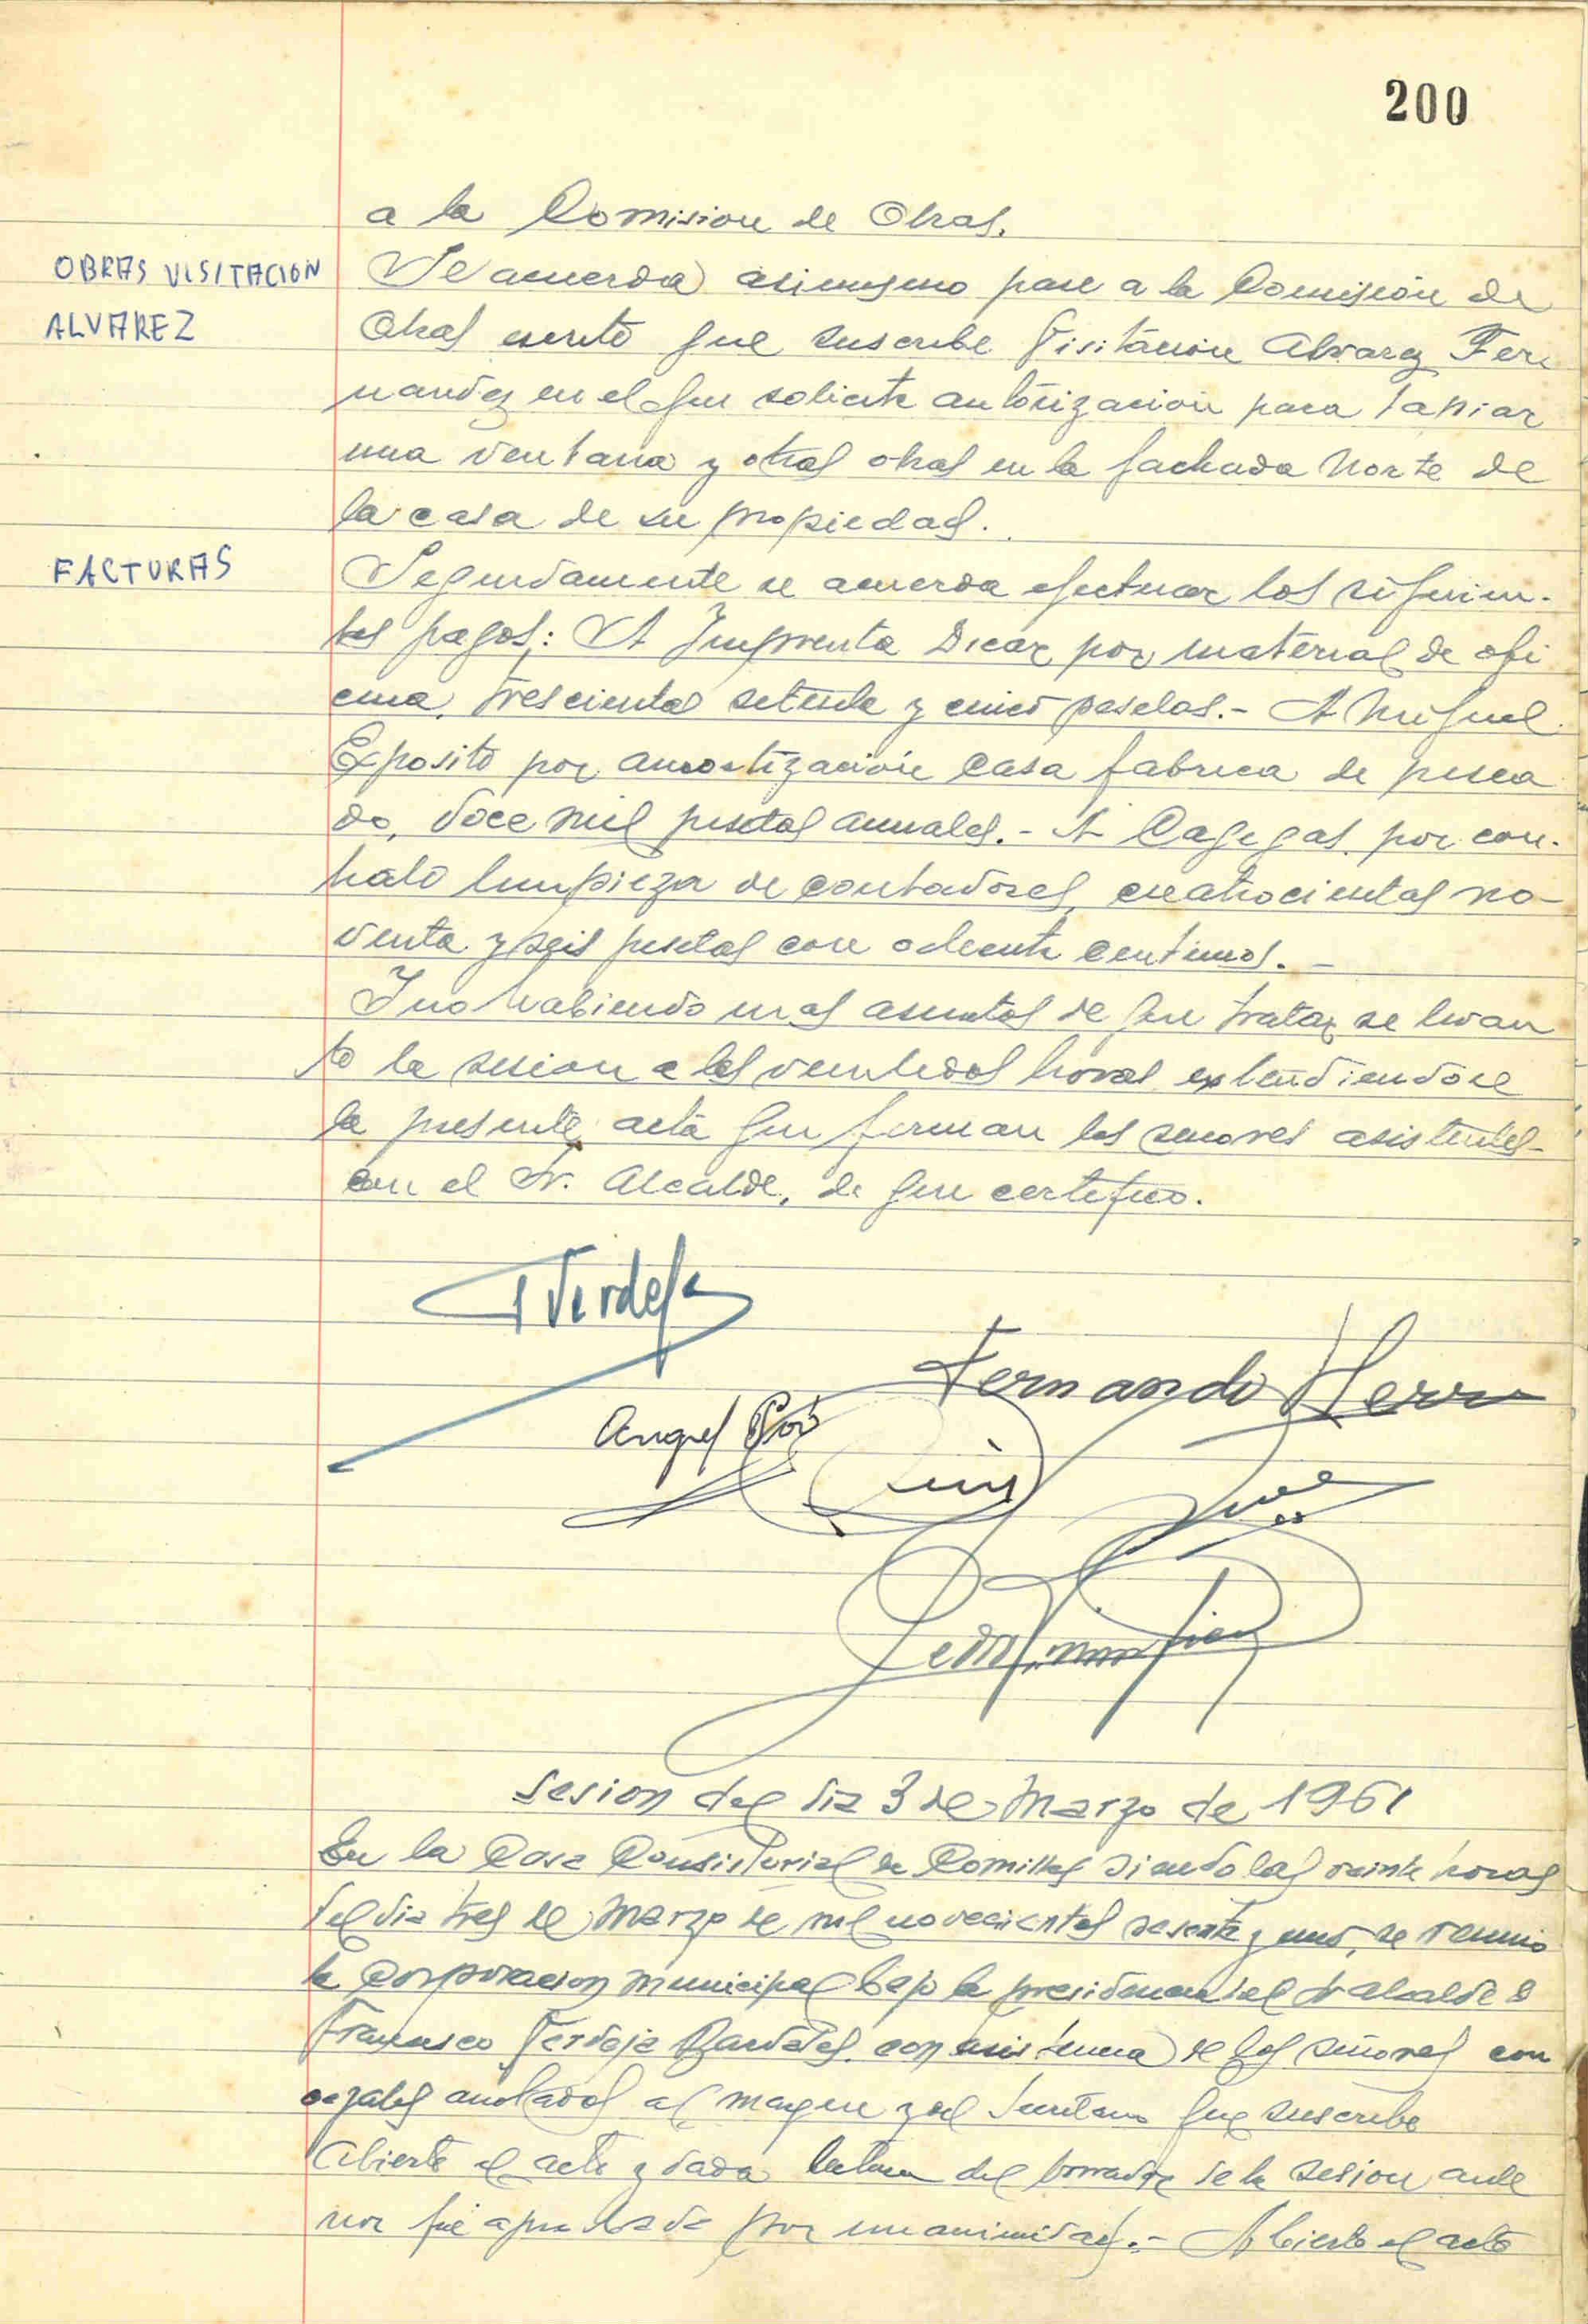 200
a la Comision de Obras.
OBRAS VISITACION
ALVAREZ
Se acuerda asimismo pase a la Comision de
Obras escrito que suscribe Visitacion Alvarez Fer
nandez en el que solicita autorizacion para tapiar
una ventana y otras obras en la fachada Norte de
la casa de su propiedad.
FACTURAS
Seguidamente se acuerda efectuar los siguien-
tes pagos: A Imprenta Dicar por material de ofi
cina, trescientas setenta y cinco pesetas.- A Miguel
Exposito por amortización casa fabrica de pesca
do, doce mil pesetas anuales.- A Cagigas por con-
trato limpieza de contadores, cuatrocientas no-
venta y seis pesetas con ochenta centimos. -
Y no habiendo mas asuntos de que tratar se levan
to la sesion a las veintidos horas extendiendose
la presente acta que firman los señores asistentes-
con el Sr. Alcalde, de que certifico.
F Verdeja
Fernando Herr
Angel Poo
Luis
Sesion del dia 3 de Marzo de 1961
En la Casa Consistorial de Comillas siendo las veinte horas
del dia tres de Marzo de mil novecientos sesenta y uno, se reunio
la Corporacion Municipal bajo la presidencia del Sr Alcalde D
Francisco Verdeja Bardales con asistencia de los señores con
cejales anotados al margen y del Secretario que suscribe
Abierto el acto y dada lectura del borrador de la sesion ante
rior fué aprobada por unanimidad.- Abierto el acto